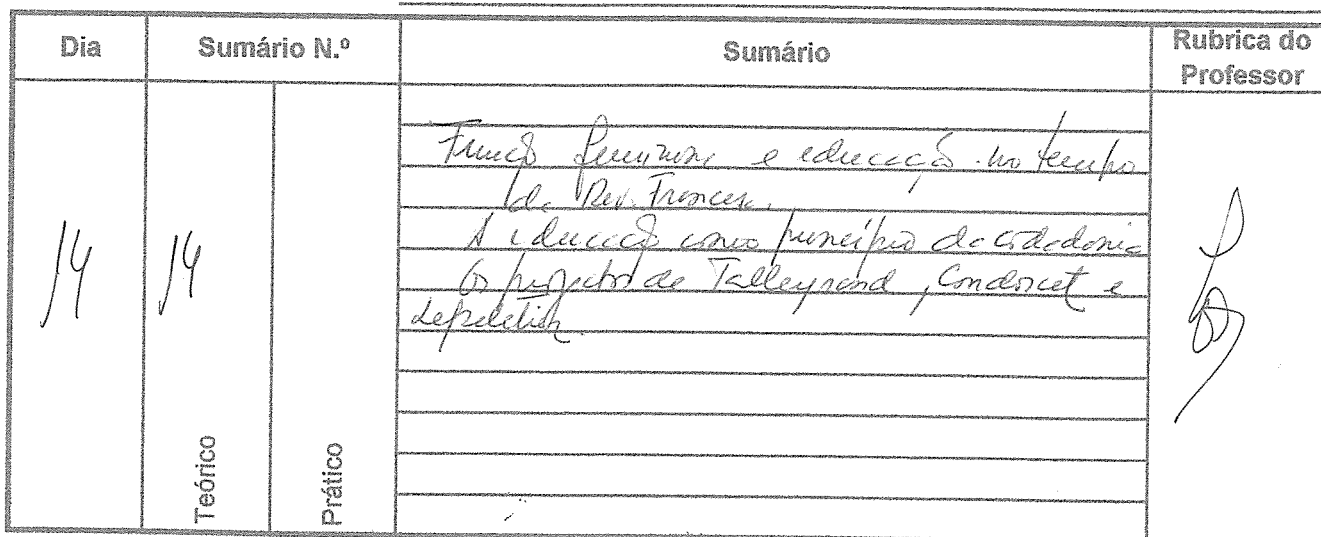 Dia
Sumário N.º
Sumário
Rubrica do
Professor
14
14
Teórico
Prático
Função feminina e educação no tempo
da Rev. Francesa.
A educação como princípio da cidadania
Os projectos de Talleyrand, Condorcet e
Lepeletier.